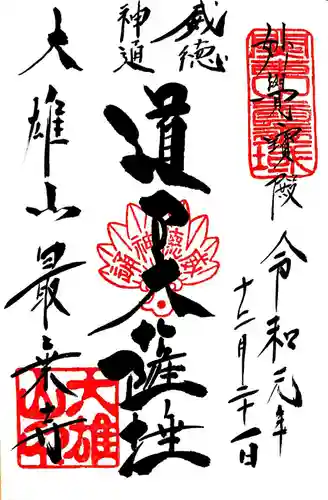 妙覺寶殿
令和元年
十二月二十一日
威徳
神通
道了大薩埵
大雄山最乗寺
大雄
山印